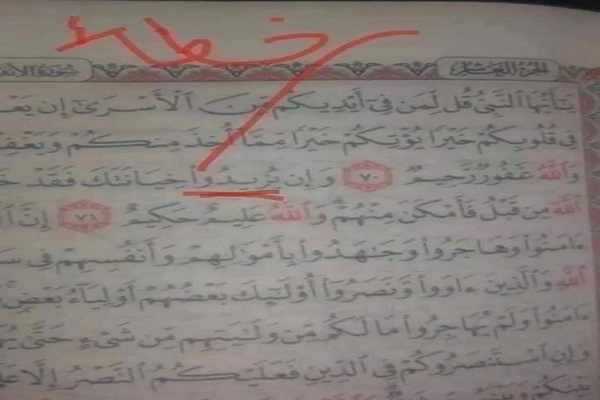 خطأ
الجزء العاشر سورة
يَٰٓأَيُّهَا ٱلنَّبِىُّ قُل لِّمَن فِىٓ أَيْدِيكُم مِّنَ ٱلْأَسْرَىٰٓ إِن
فِى قُلُوبِكُمْ خَيْرًا يُؤْتِكُمْ خَيْرًا مِّمَّآ أُخِذَ مِنكُمْ وَيَغْفِرْ
وَٱللَّهُ غَفُورٌ رَّحِيمٌ ٧٠ وَإِن تُرِيدُوا۟ خِيَانَتَكَ فَقَدْ
ٱللَّهَ مِن قَبْلُ فَأَمْكَنَ مِنْهُمْ وَٱللَّهُ عَلِيمٌ حَكِيمٌ ٧١ إِنَّ
ءَامَنُوا۟ وَهَاجَرُوا۟ وَجَٰهَدُوا۟ بِأَمْوَٰلِهِمْ وَأَنفُسِهِمْ فِى
ٱللَّهِ وَٱلَّذِينَ ءَاوَوا۟ وَّنَصَرُوٓا۟ أُو۟لَٰٓئِكَ بَعْضُهُمْ أَوْلِيَآءُ بَعْضٍ
ءَامَنُوا۟ وَلَمْ يُهَاجِرُوا۟ مَا لَكُم مِّن وَلَٰيَتِهِم مِّن شَىْءٍ حَتَّىٰ
وَإِنِ ٱسْتَنصَرُوكُمْ فِى ٱلدِّينِ فَعَلَيْكُمُ ٱلنَّصْرُ إِلَّا
بَيْنَكُمْ